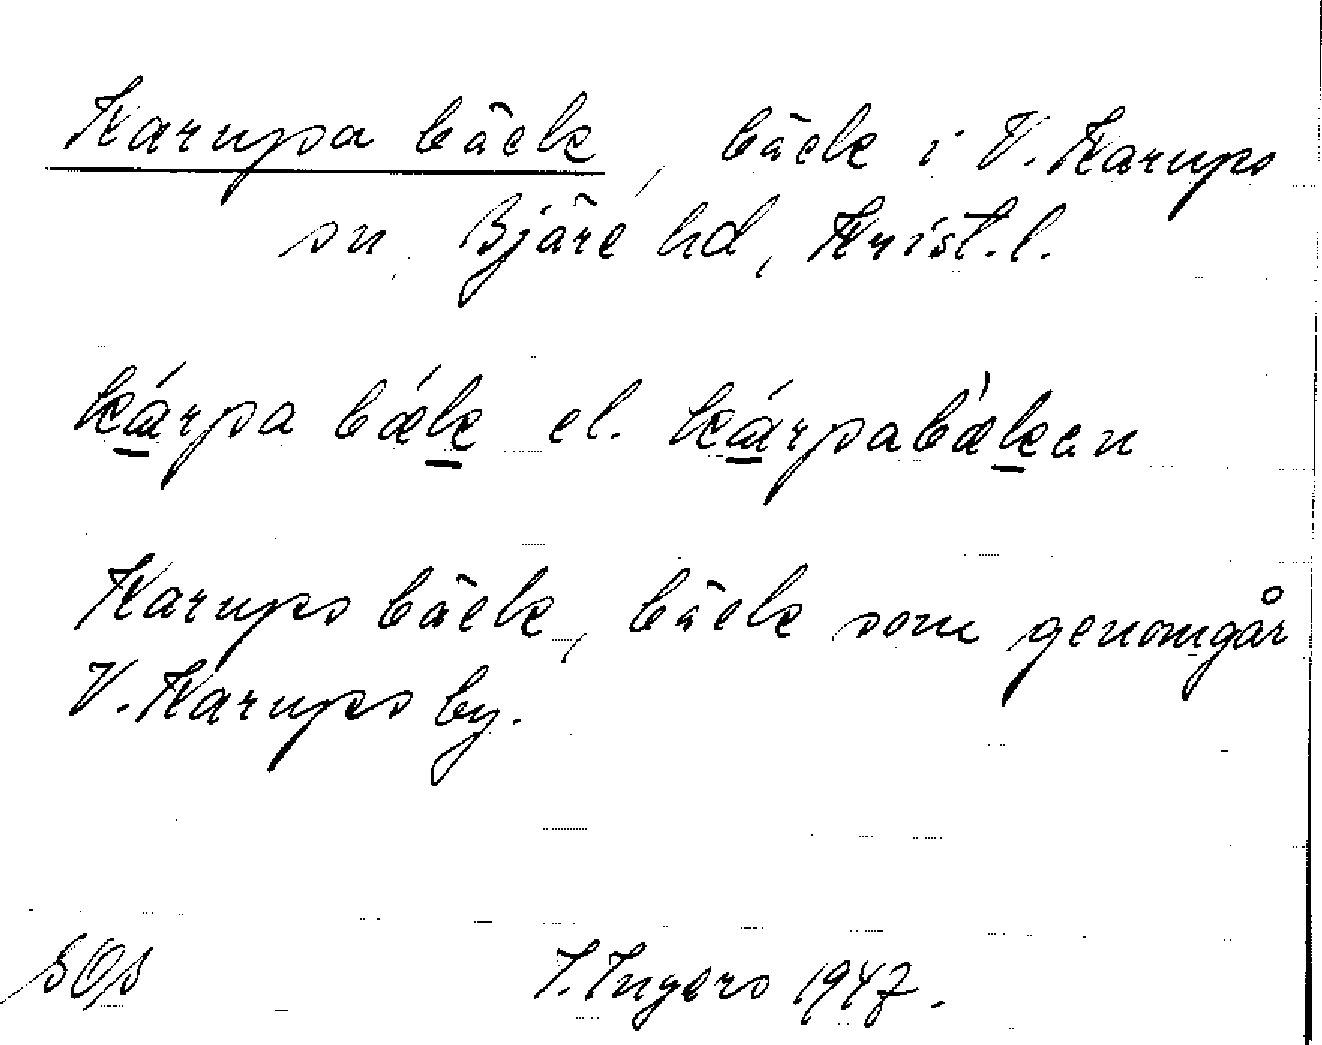 Karupa bäck, bäck i V. Karups
sn, Bjäre hd, Krist.l.
kárpa bǽk el. kárpabækan
Karups bäck, bäck som genomgår
V. Karups by.
SOs I. Ingers 1947.